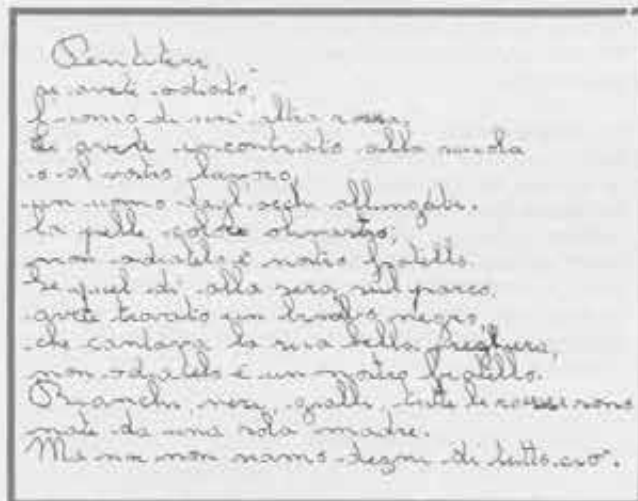 Pentitevi
se avete odiato
l'uomo di un'altra razza.
Se avete incontrato alla scuola
o al vostro lavoro,
un uomo dagl'occhi allungati.
la pelle color olivastro,
non odiatelo è nostro fratello.
Se quel dì alla sera, sul parco,
avete trovato un bimbo negro,
che cantava la sua bella preghiera,
non odiatelo è un nostro fratello.
Bianchi, neri, gialli, tutte le razze sono
nate da una sola madre.
Ma noi non siamo degni di tutto ciò.